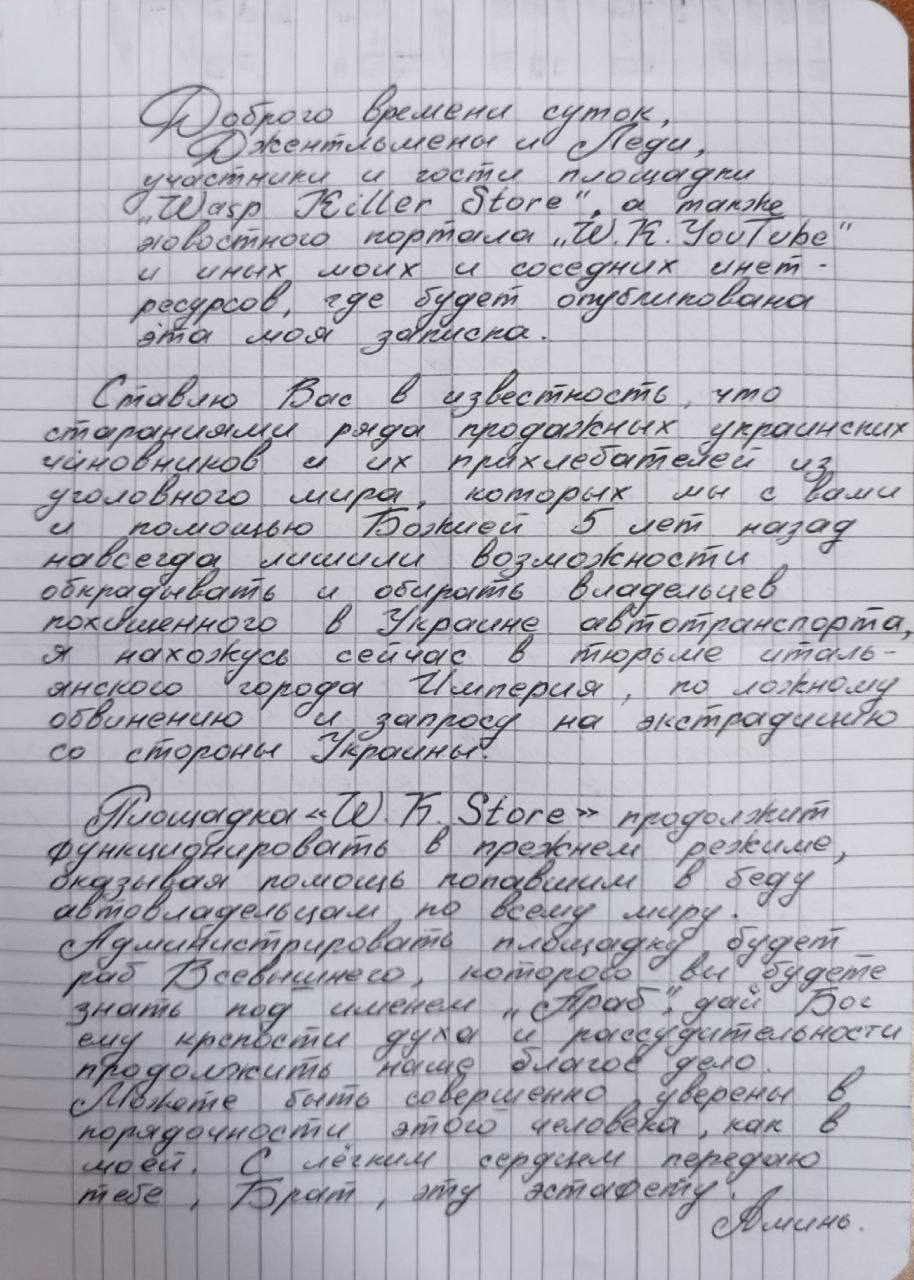 Доброго времени суток,
Джентльмены и Леди,
участники и гости площадки
„Wasp Killer Store", а также
новостного портала „W.K.YouTube"
и иных моих и соседних инет-
ресурсов, где будет опубликована
эта моя записка.
Ставлю Вас в известность, что
стараниями ряда продажных украинских
чиновников и их прихлебателей из
уголовного мира, которых мы с вами
и помощью Божией 5 лет назад
навсегда лишили возможности
обкрадывать и обирать владельцев
похищенного в Украине автотранспорта,
я нахожусь сейчас в тюрьме италь-
янского города Империя, по ложному
обвинению и запросу на экстрадицию
со стороны Украины.
Площадка «W.K.Store» продолжит
функционировать в прежнем режиме,
оказывая помощь попавшим в беду
автовладельцам по всему миру.
Администрировать площадку будет
раб Всевышнего, которого вы будете
знать под именем „Араб", дай Бог
ему крепости духа и рассудительности
продолжить наше благое дело.
Можете быть совершенно уверены в
порядочности этого человека, как в
моей. С лёгким сердцем передаю
тебе, Брат, эту эстафету.
Аминь.